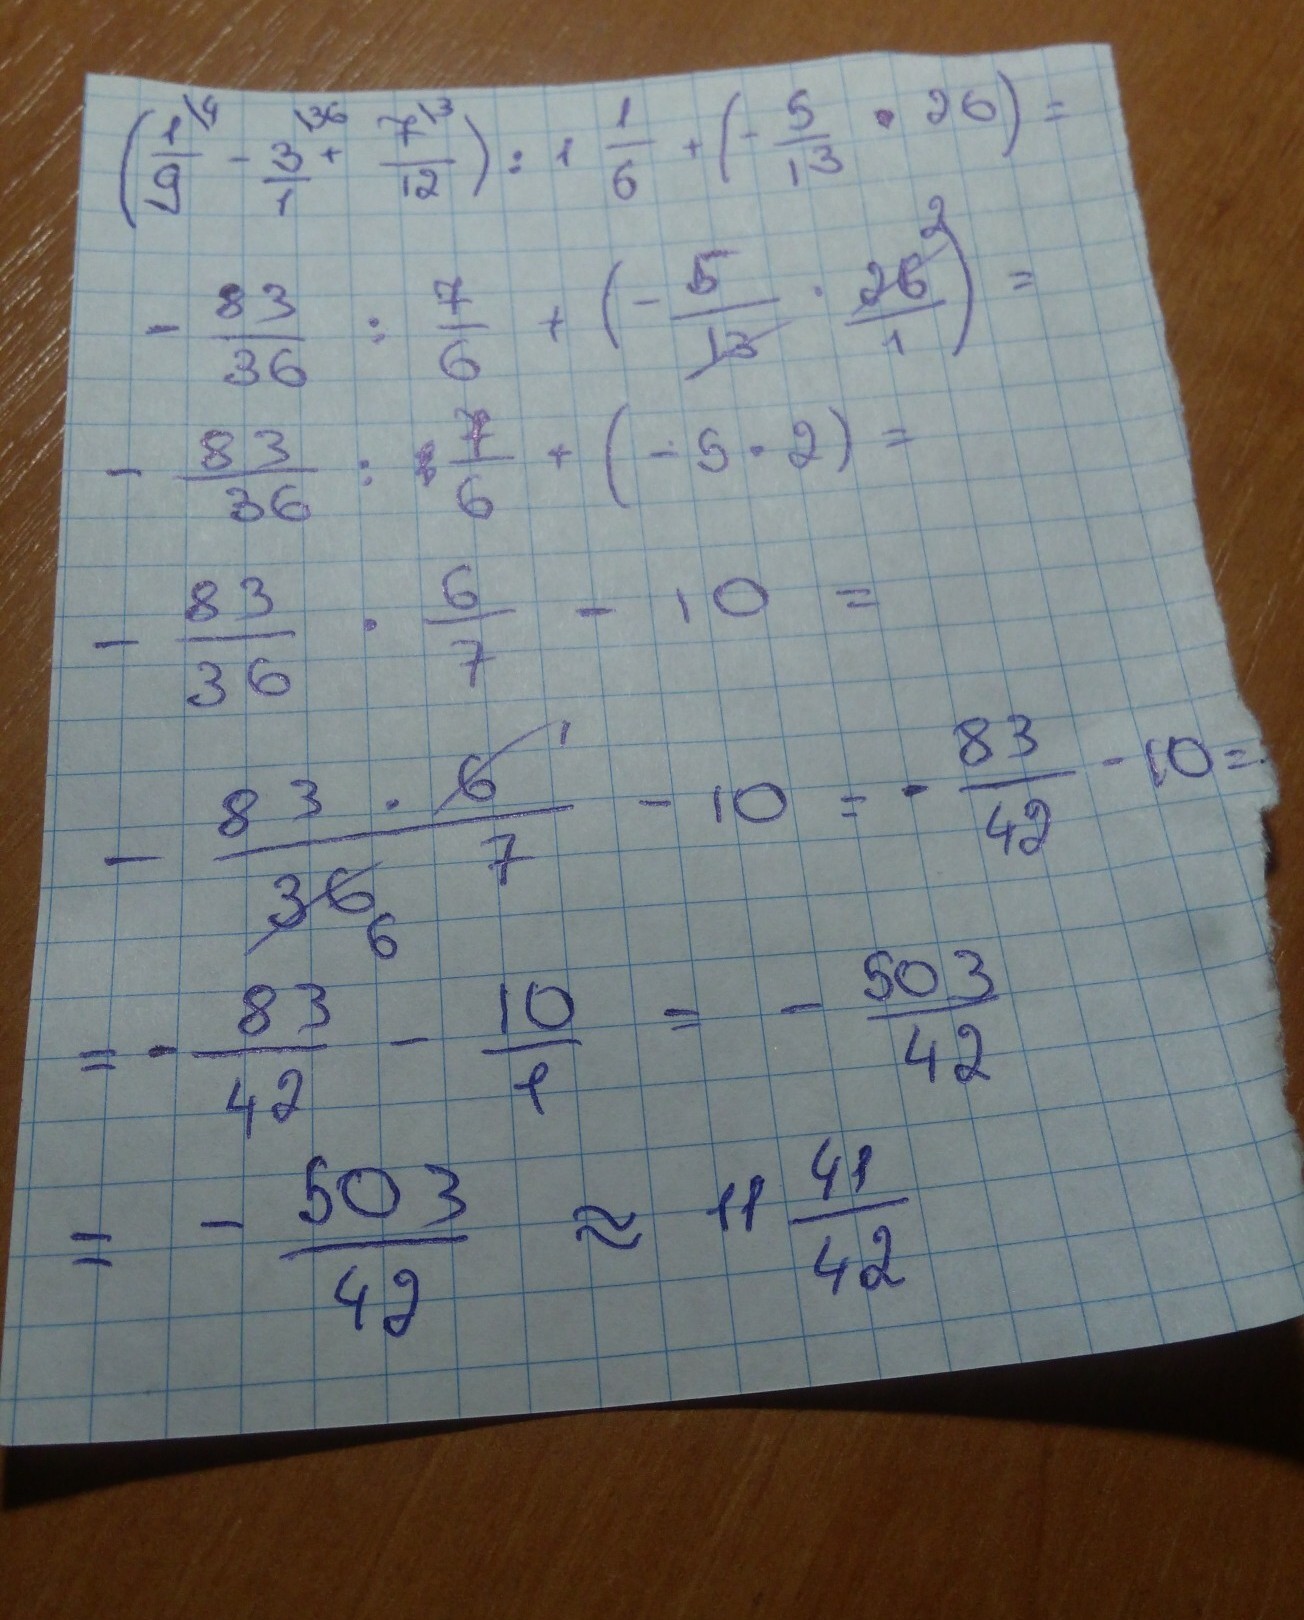 (1/9 \4 - 3/1 \36 + 7/12 \3) : 1 1/6 + (- 5/13 · 26) =
- 83/36 : 7/6 + (- 5/13 · 26/1 2) =
- 83/36 : 7/6 + (- 5 · 2) =
- 83/36 · 6/7 - 10 =
- 83 · 6 1/36 6 7 - 10 = - 83/42 - 10 =
= - 83/42 - 10/1 = - 503/42
= - 503/42 ≈ 11 41/42